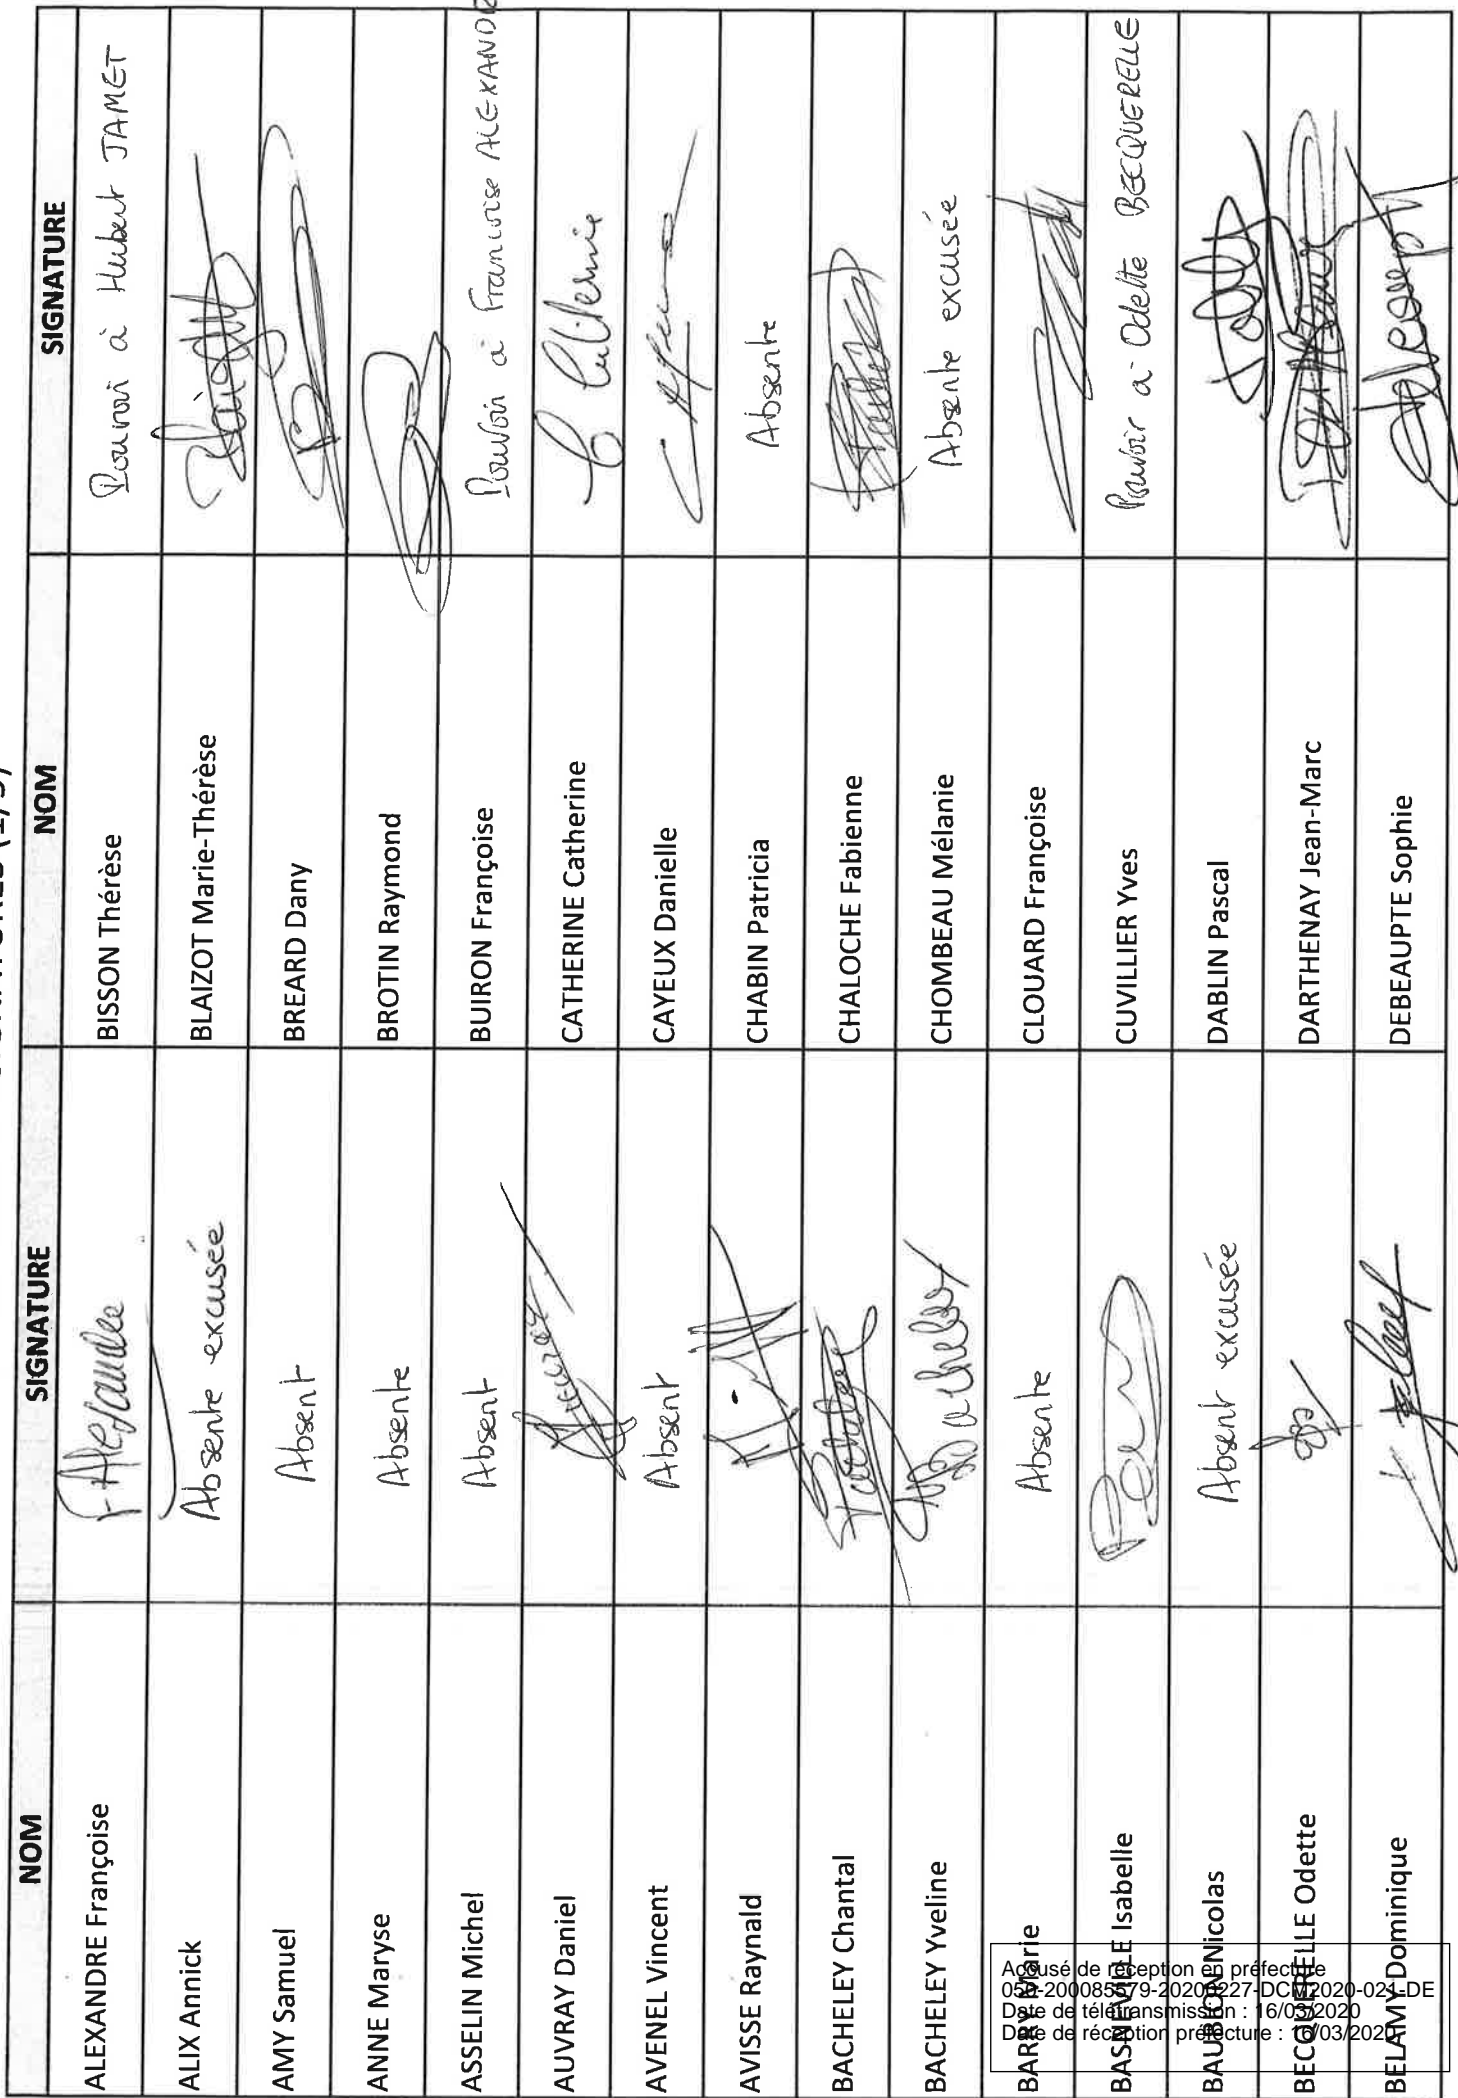 NOM SIGNATURE NOM SIGNATURE
ALEXANDRE Françoise F. Alexandre BISSON Thérèse Pouvoir à Hubert JAMET
ALIX Annick Absente excusée BLAIZOT Marie-Thérèse
AMY Samuel Absent BREARD Dany
ANNE Maryse Absente BROTIN Raymond
ASSELIN Michel Absent BUIRON Françoise Pouvoir à Françoise ALEXANDRE
AUVRAY Daniel CATHERINE Catherine
AVENEL Vincent Absent CAYEUX Danielle
AVISSE Raynald CHABIN Patricia Absente
BACHELEY Chantal CHALOCHE Fabienne
BACHELEY Yveline CHOMBEAU Mélanie Absente excusée
BARRY Marie Absente CLOUARD Françoise
BASNEVILLE Isabelle CUVILLIER Yves Pouvoir à Odette BECQUERELLE
BAUBION Nicolas Absent excusée DABLIN Pascal
BECQUERELLE Odette DARTHENAY Jean-Marc
BELAMY Dominique DEBEAUPTE Sophie
Accusé de réception en préfecture
050-200085579-20200227-DCM2020-021-DE
Date de télétransmission : 16/03/2020
Date de réception préfecture : 16/03/2020